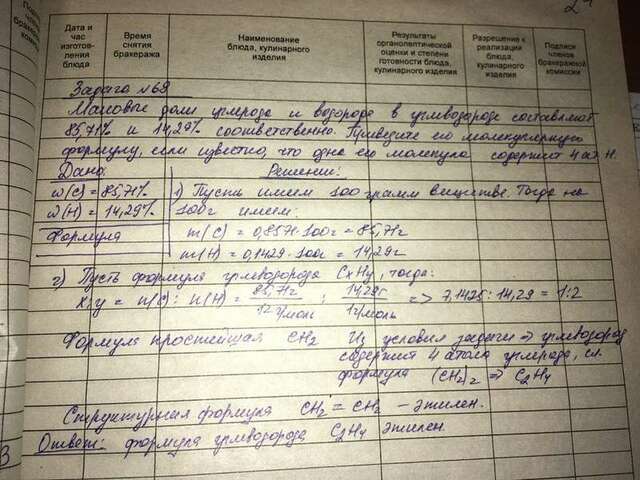 2
Дата и час изготов- ления блюда
Время снятия бракеража
Наименование блюда, кулинарного изделия
Результаты органолептической оценки и степени готовности блюда, кулинарного изделия
Разрешение к реализации блюда, кулинарного изделия
Подписи членов бракеражной комиссии
Задача №69
Массовые доли углерода и водорода в углеводороде составляют
85,71% и 14,29% соответственно. Приведите его молекулярную
формулу, если известно, что одна его молекула содержит 4 ат H.
Дано: Решение:
ω(C) = 85,71% 1) Пусть имеем 100 грамм вещества. Тогда на
ω(H) = 14,29% 100г имеем:
Формула m(C) = 0,8571·100г = 85,71г
m(H) = 0,1429·100г = 14,29г
2) Пусть формула углеводорода CxHy, тогда:
x:y = n(C) : n(H) = 85,71г / 12г/моль : 14,29г / 1г/моль => 7,1425 : 14,29 = 1:2
Формула простейшая CH2 Из условия задачи => углеводород
содержит 4 атома углерода, сл.
формула (CH2)2 => C2H4
Структурная формула CH2 = CH2 - этилен.
Ответ: формула углеводорода C2H4 этилен.